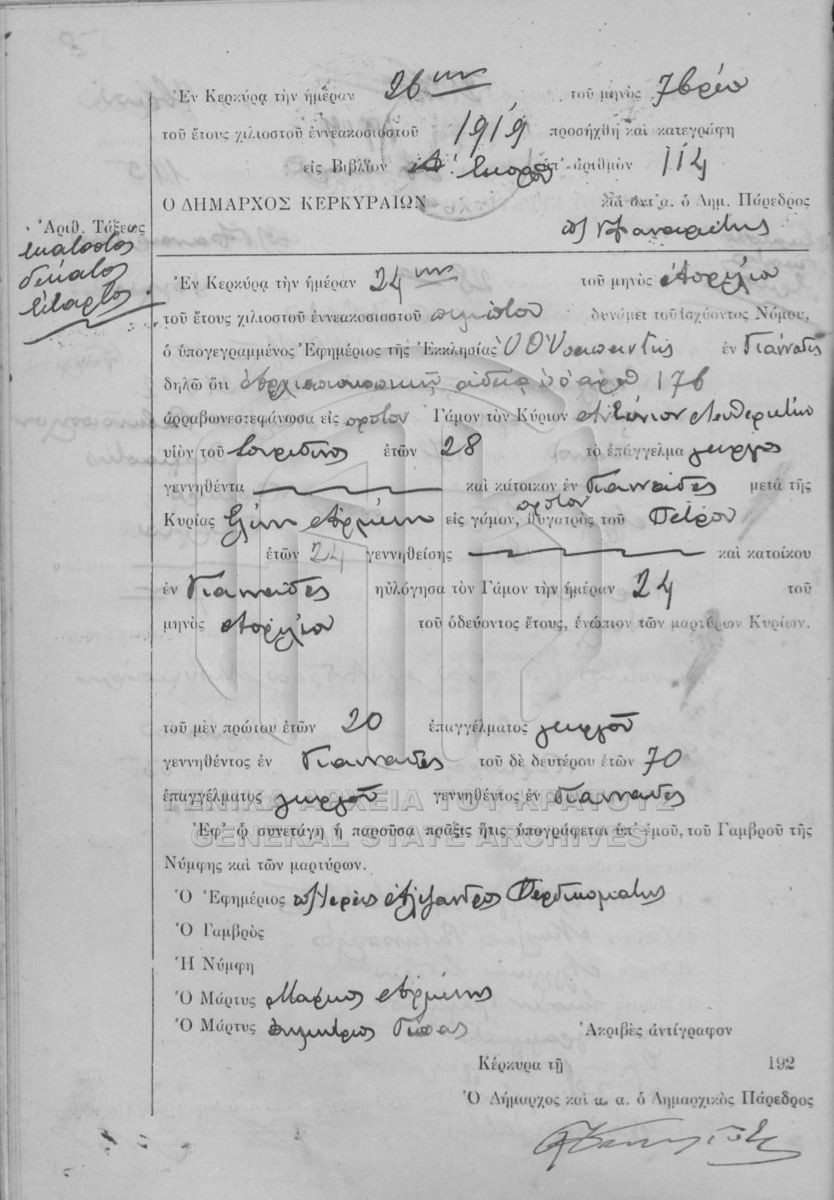 Ἐν Κερκύρᾳ τὴν ἡμέραν 26ην τοῦ μηνὸς 7βρίου
τοῦ ἔτους χιλιοστοῦ ἐννεακοσιοστοῦ 1919 προσήχθη καὶ κατεγράφη
εἰς Βιβλίον ὑπ' ἀριθμὸν 114
Ο ΔΗΜΑΡΧΟΣ ΚΕΡΚΥΡΑΙΩΝ ὁ Δημ. Πάρεδρος
Ἀριθ. Τάξεως
ἑκατοστὸς
δέκατος
τέταρτος
Ἐν Κερκύρᾳ τὴν ἡμέραν 24ην τοῦ μηνὸς Ἀπριλίου
τοῦ ἔτους χιλιοστοῦ ἐννεακοσιοστοῦ δυνάμει τοῦ ἰσχύοντος Νόμου,
ὁ ὑπογεγραμμένος Ἐφημέριος τῆς Ἐκκλησίας Υ Θ Ὑπαπαντῆς ἐν Γιαννάδες
δηλῶ ὅτι ἀρχιεπισκοπικῇ ἀδείᾳ ὑπ' ἀριθ 176
ἀρραβωνεστεφάνωσα εἰς πρῶτον Γάμον τὸν Κύριον Ἀντώνιον
υἱὸν τοῦ Σπυρίδωνος ἐτῶν 28 τὸ ἐπάγγελμα γεωργὸς
γεννηθέντα καὶ κάτοικον ἐν Γιαννάδες μετὰ τῆς
Κυρίας Ἑλένη Ἀρμένη εἰς πρῶτον γάμον, θυγατρὸς τοῦ Πέτρου
ἐτῶν 24 γεννηθείσης καὶ κατοίκου
ἐν Γιαννάδες ηὐλόγησα τὸν Γάμον τὴν ἡμέραν 24 τοῦ
μηνὸς Ἀπριλίου τοῦ ὁδεύοντος ἔτους, ἐνώπιον τῶν μαρτύρων Κυρίων.
τοῦ μὲν πρώτου ἐτῶν 20 ἐπαγγέλματος γεωργοῦ
γεννηθέντος ἐν Γιαννάδες τοῦ δὲ δευτέρου ἐτῶν 70
ἐπαγγέλματος γεωργοῦ γεννηθέντος ἐν Γιαννάδες
ΓΕΝΙΚΑ ΑΡΧΕΙΑ ΤΟΥ ΚΡΑΤΟΥΣ
Ἐφ' ᾧ συνετάγη ἡ παροῦσα πρᾶξις ἥτις ὑπογράφεται ὑπ' ἐμοῦ, τοῦ Γαμβροῦ τῆς
GENERAL STATE ARCHIVES
Νύμφης καὶ τῶν μαρτύρων.
Ὁ Ἐφημέριος Ἱερεὺς Ἀλέξανδρος Περδικομάτης
Ὁ Γαμβρὸς
Ἡ Νύμφη
Ὁ Μάρτυς Μάρκος Ἀρμένης
Ὁ Μάρτυς Δημήτριος
Ἀκριβὲς ἀντίγραφον
Κέρκυρα τῇ 192
Ὁ Δήμαρχος καὶ α. α. ὁ Δημαρχικὸς Πάρεδρος